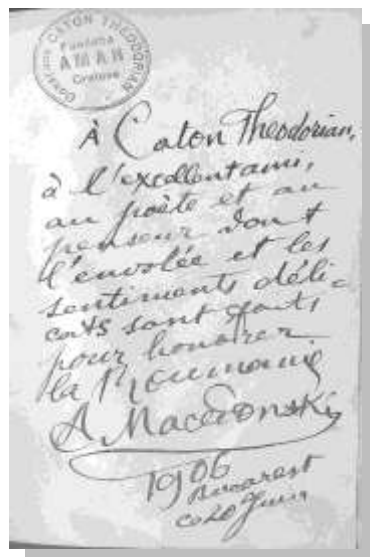 Donațiunea CATON THEODORIAN
Fundația
AMAN
Craiova
À Caton Theodorian,
à l'excellent ami,
au poète et au
penseur dont
l'envolée et les
sentiments déli-
cats sont faits
pour honorer
la Roumanie
A. Macedonski
1906
Bucarest
ce 20 Juin